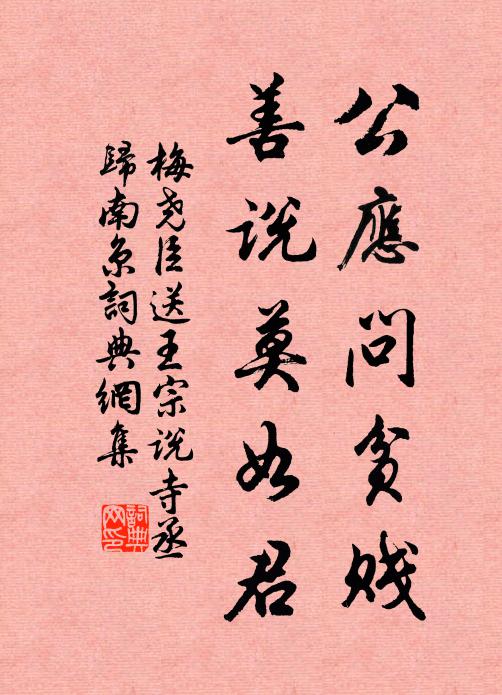 公應問貧賤
善說莫如君
梅堯臣送王宗說寺丞
歸南京詞典網集
詞典網印